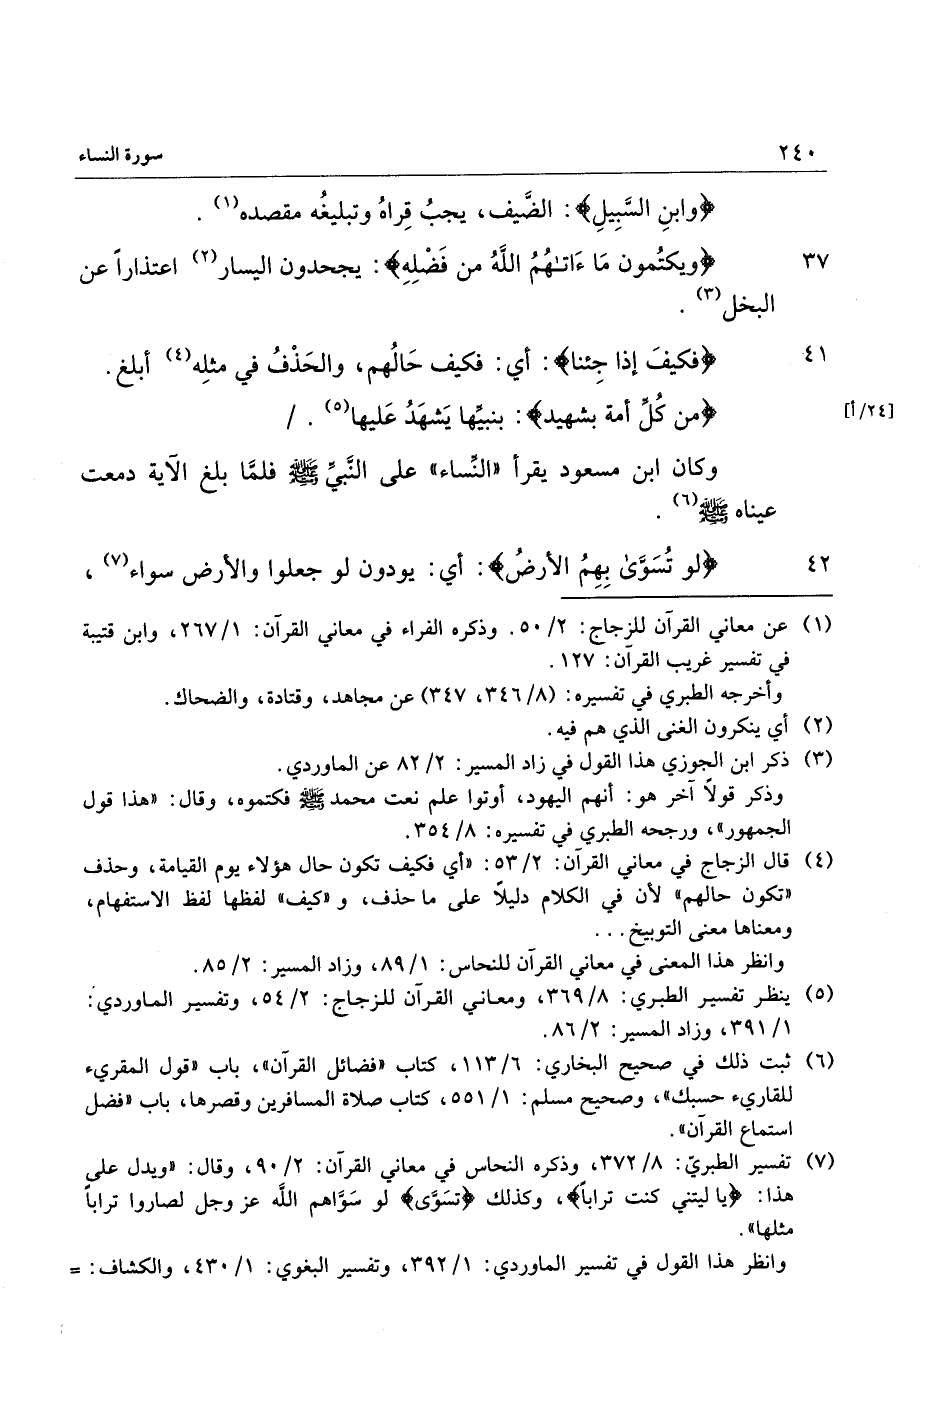 ٢٤٠ سورة النساء
﴿وابنِ السَّبِيلِ﴾: الضَّيف، يجبُ قِراهُ وتبليغُه مقصده(١) .
٣٧ ﴿ويكتُمون مَا ءَاتـٰهُمُ اللَّهُ من فَضْلِهِ﴾: يجحدون اليسار(٢) اعتذاراً عن
البخل(٣) .
٤١ ﴿فكيفَ إذا جِئنا﴾: أي: فكيف حَالُهم، والحَذْفُ في مثلِه(٤) أبلغ.
﴿من كُلِّ أمة بشهيد﴾: بنبيِّها يَشهَدُ عَليها(٥) . / [٢٤/أ]
وكان ابن مسعود يقرأ «النِّساء» على النَّبيِّ ﷺ فلمَّا بلغ الآية دمعت
عيناه ﷺ(٦) .
٤٢ ﴿لو تُسَوَّىٰ بِهِمُ الأرضُ﴾: أي: يودون لو جعلوا والأرض سواء(٧) ،
(١) عن معاني القرآن للزجاج: ٢/ ٥٠. وذكره الفراء في معاني القرآن: ١/ ٢٦٧، وابن قتيبة
في تفسير غريب القرآن: ١٢٧.
وأخرجه الطبري في تفسيره: (٨/ ٣٤٦، ٣٤٧) عن مجاهد، وقتادة، والضحاك.
(٢) أي ينكرون الغنى الذي هم فيه.
(٣) ذكر ابن الجوزي هذا القول في زاد المسير: ٢/ ٨٢ عن الماوردي.
وذكر قولاً آخر هو: أنهم اليهود، أوتوا علم نعت محمد ﷺ فكتموه، وقال: «هذا قول
الجمهور»، ورجحه الطبري في تفسيره: ٨/ ٣٥٤.
(٤) قال الزجاج في معاني القرآن: ٢/ ٥٣: «أي فكيف تكون حال هؤلاء يوم القيامة، وحذف
«تكون حالهم» لأن في الكلام دليلاً على ما حذف، و «كيف» لفظها لفظ الاستفهام،
ومعناها معنى التوبيخ...
وانظر هذا المعنى في معاني القرآن للنحاس: ١/ ٨٩، وزاد المسير: ٢/ ٨٥.
(٥) ينظر تفسير الطبري: ٨/ ٣٦٩، ومعاني القرآن للزجاج: ٢/ ٥٤، وتفسير الماوردي:
١/ ٣٩١، وزاد المسير: ٢/ ٨٦.
(٦) ثبت ذلك في صحيح البخاري: ٦/ ١١٣، كتاب «فضائل القرآن»، باب «قول المقريء
للقاريء حسبك»، وصحيح مسلم: ١/ ٥٥١، كتاب صلاة المسافرين وقصرها، باب «فضل
استماع القرآن».
(٧) تفسير الطبريّ: ٨/ ٣٧٢، وذكره النحاس في معاني القرآن: ٢/ ٩٠، وقال: «ويدل على
هذا: ﴿يا ليتني كنت تراباً﴾، وكذلك ﴿تسَوَّى﴾ لو سَوَّاهم اللَّه عز وجل لصاروا تراباً
مثلها».
وانظر هذا القول في تفسير الماوردي: ١/ ٣٩٢، وتفسير البغوي: ١/ ٤٣٠، والكشاف: =